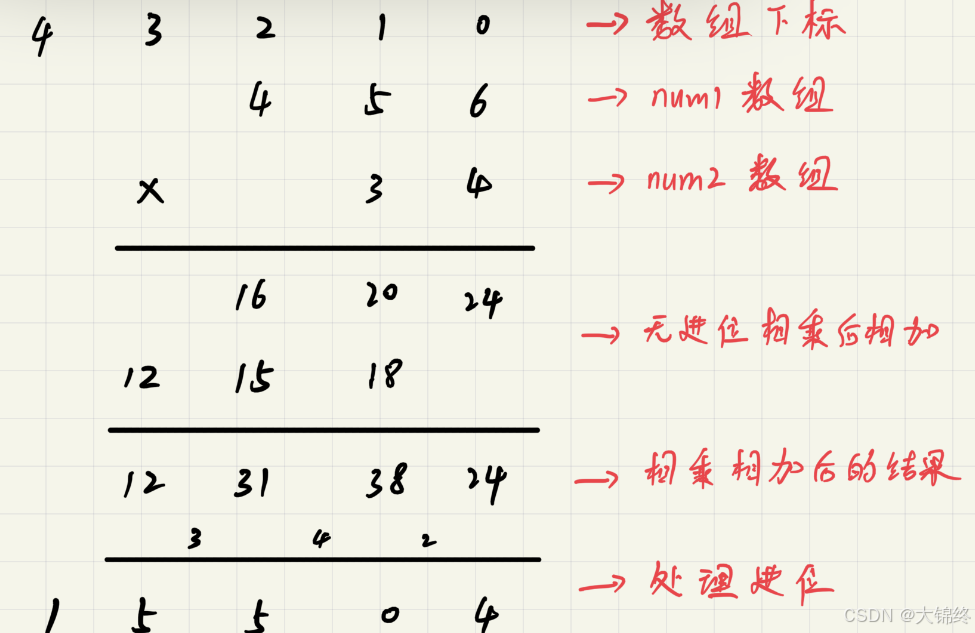 4 3 2 1 0 → 数组下标
4 5 6 → num1 数组
× 3 4 → num2 数组
16 20 24
→ 无进位相乘后相加
12 15 18
12 31 38 24 → 相乘相加后的结果
3 4 2
→ 处理进位
1 5 5 0 4
CSDN @大锦终